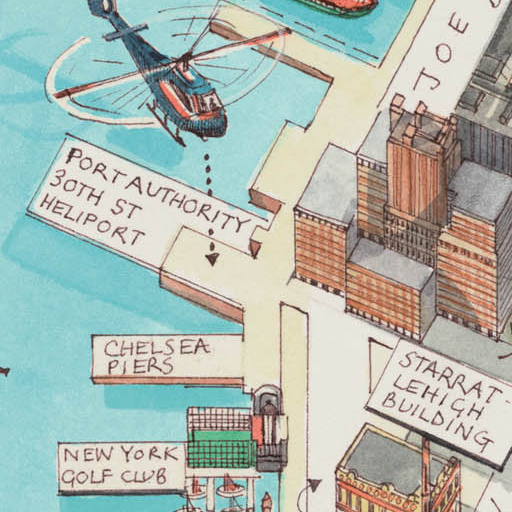 JOE
PORT AUTHORITY
30TH ST
HELIPORT
CHELSEA
PIERS
STARRAT-
LEHIGH
BUILDING
NEW YORK
GOLF CLUB